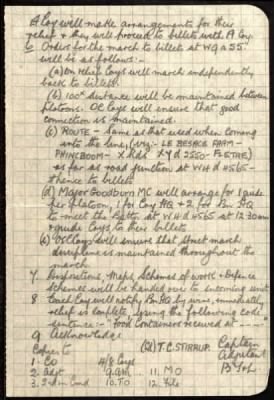 A Coy will make arrangements for their
relief & they will proceed to billets with A Coy.
6 Orders for the march to billets at W9a55
will be as follows:-
(a) on relief Coys will march independently
back to billets.
(b) 100x distance will be maintained between
platoons. OC Coys will ensure that good
connection is maintained.
(c) ROUTE - Same as that used when coming
into the line, (viz:- LE BESACE FARM -
PHINCBOOM - X rds X4d5550 FLETRE)
as far as road junction at WHd4565
thence to billets.
(d) Major Goodburn MC will arrange for 1 guide
per platoon, 1 for Coy HQ & 2 for Bn HQ
to meet the Battn at WHd4565 at 12.30am
& guide Coys to their billets
(e) OC Coys will ensure that strict march
discipline is maintained throughout the
march
7 Dispositions, Maps, Schemes of work & Defence
schemes will be handed over to incoming unit
8 Each Coy will notify Bn HQ by wire, immediately
relief is complete, using the following code
sentence:- "Food Containers received at ----"
9 Acknowledge
Copies to (Sd) T.C. STIRRUP. Captain
1. CO 4/8 Coys Adjutant
2. Adjt 9. QM 11. MO
3. 2-in-Cmd 10. TO 12. File